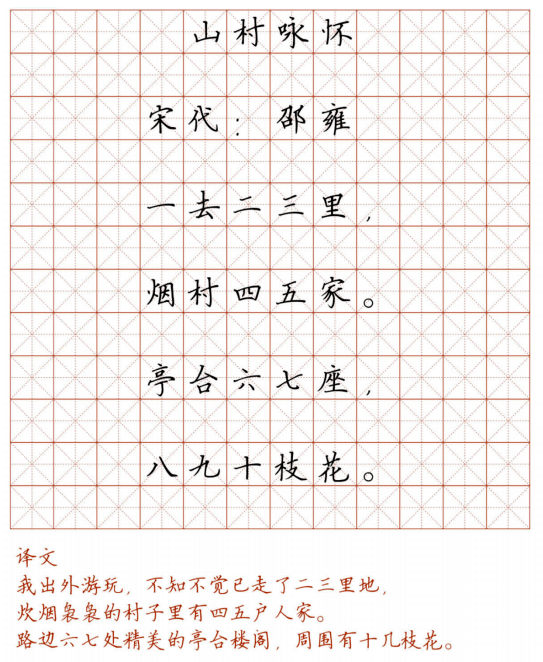 山村咏怀
宋代：邵雍
一去二三里，
烟村四五家。
亭台六七座，
八九十枝花。
译文
我出外游玩，不知不觉已走了二三里地，
炊烟袅袅的村子里有四五户人家。
路边六七处精美的亭台楼阁，周围有十几枝花。